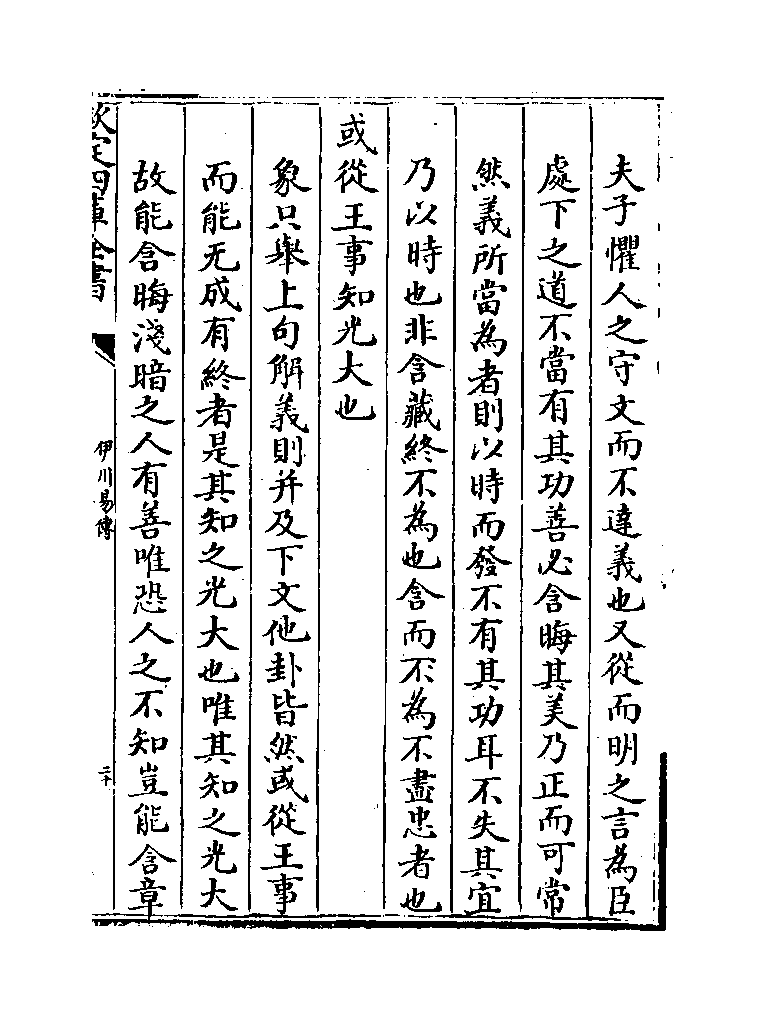 夫子懼人之守文而不達義也又從而明之言為臣
處下之道不當有其功善必含晦其美乃正而可常
然義所當為者則以時而發不有其功耳不失其宜
乃以時也非含藏終不為也含而不為不盡忠者也
或從王事知光大也
象只舉上句解義則并及下文他卦皆然或從王事
而能无成有終者是其知之光大也唯其知之光大
故能含晦淺暗之人有善唯恐人之不知豈能含章
欽定四庫全書
伊川易傳
二十